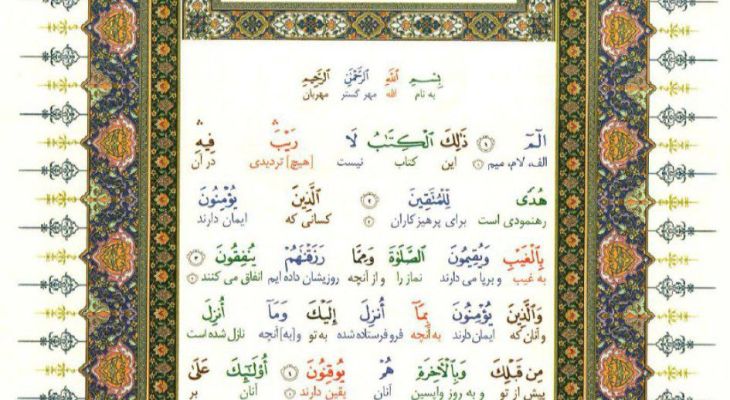 بِسْمِ اللَّهِ الرَّحْمَٰنِ الرَّحِيمِ
به نام الله مهر گستر مهربان
الٓمٓ ١ ذَٰلِكَ ٱلْكِتَٰبُ لَا رَيْبَ ۛ فِيهِ ۛ
الف، لام، میم ١ این کتاب نیست [هیچ] تردیدی در آن
هُدًى لِّلْمُتَّقِينَ ٢ ٱلَّذِينَ يُؤْمِنُونَ
رهنمودی است برای پرهیزکاران ٢ کسانی که ایمان دارند
بِٱلْغَيْبِ وَيُقِيمُونَ ٱلصَّلَوٰةَ وَمِمَّا رَزَقْنَٰهُمْ يُنفِقُونَ ٣
به غیب و برپا می دارند نماز را و از آنچه روزیشان داده ایم انفاق می کنند ٣
وَٱلَّذِينَ يُؤْمِنُونَ بِمَآ أُنزِلَ إِلَيْكَ وَمَآ أُنزِلَ
و آنان که ایمان دارند به آنچه فرو فرستاده شده به تو و [به] آنچه نازل شده است
مِن قَبْلِكَ وَبِٱلْأَخِرَةِ هُمْ يُوقِنُونَ ٤ أُو۟لَٰٓئِكَ عَلَىٰ
پیش از تو و به روز واپسین آنان یقین دارند ٤ آنان بر